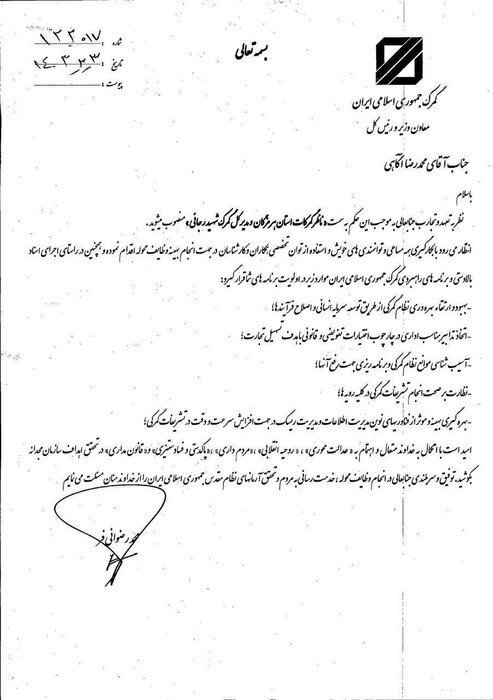 بسمه تعالی
شماره : ۱۲۳۰۱۷
تاریخ : ۱۴۰۳/۲/۳
پیوست :
گمرک جمهوری اسلامی ایران
معاون وزیر و رئیس کل
جناب آقای محمدرضا آگاهی
باسلام
نظر به تعهد و تجارب جنابعالی به موجب این حکم به سمت «ناظر گمرکات استان هرمزگان و مدیر کل گمرک شهید رجایی» منصوب میشوید.
انتظار می رود با بکارگیری همه مساعی و توانمندی های خویش و استفاده از توان تخصصی همکاران و کارشناسان در جهت انجام بهینه وظایف محوله اقدام نموده و همچنین در راستای اجرای اسناد
بالادستی و برنامه های راهبردی گمرک جمهوری اسلامی ایران موارد زیر در اولویت برنامه های شما قرار گیرد:
-بهبود و ارتقاء بهره وری نظام گمرکی از طریق توسعه سرمایه انسانی و اصلاح فرآیندها؛
-اتخاذ تدابیر مناسب اداری در چارچوب اختیارات تفویضی و قانونی با هدف تسهیل تجارت؛
-آسیب شناسی موانع نظام گمرکی و برنامه ریزی جهت رفع آنها؛
-نظارت بر صحت انجام تشریفات گمرکی در کلیه رویه ها؛
-بهره گیری بهینه و موثر از فناوریهای نوین مدیریت اطلاعات و مدیریت ریسک در جهت افزایش سرعت و دقت در تشریفات گمرکی؛
امید است با اتکال به خداوند متعال و اهتمام به «عدالت محوری»، «روحیه انقلابی»، «مردم داری»، «پاکدستی و فساد ستیزی» و «قانون مداری» در تحقق اهداف سازمان مجدانه
بکوشید، توفیق و سربلندی جنابعالی در انجام وظایف محوله، خدمت رسانی به مردم و تحقق آرمانهای نظام مقدس جمهوری اسلامی ایران را از خداوند منان مسئلت می نمایم
محمد رضوانی فر